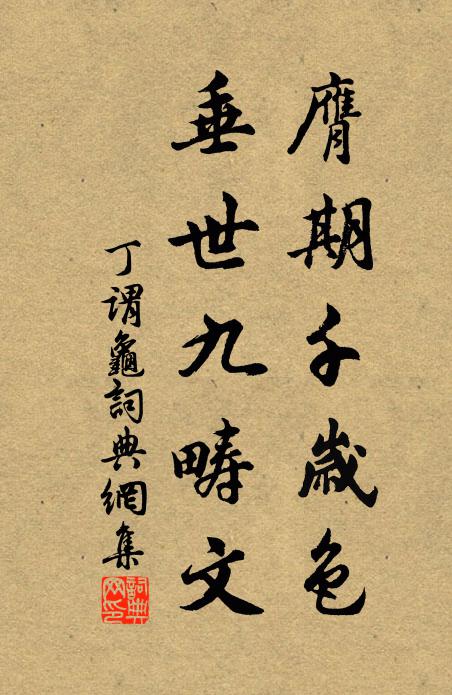 膺期千歲色
垂世九疇文
丁謂龜詞典網集
詞典網印